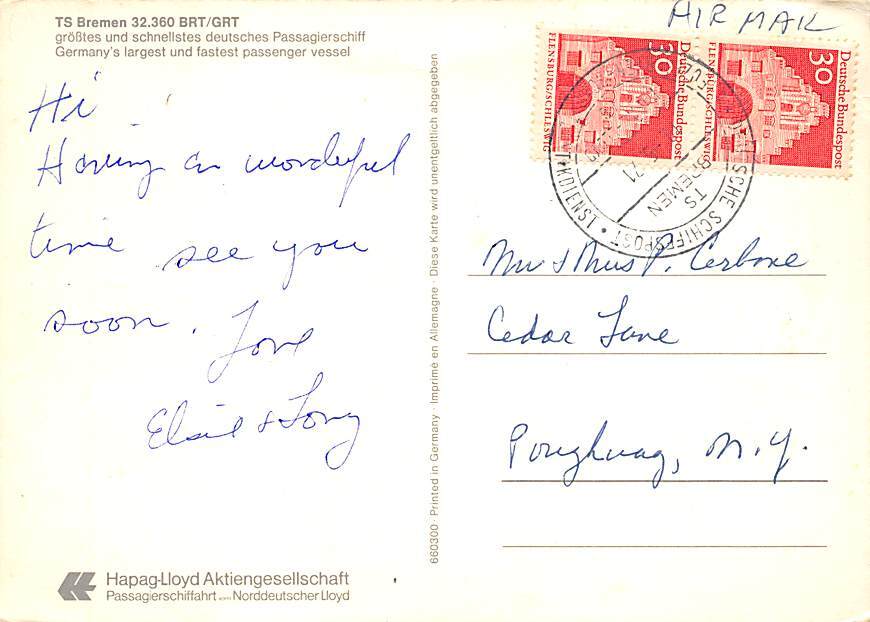 TS Bremen 32.360 BRT/GRT
größtes und schnellstes deutsches Passagierschiff
Germany's largest and fastest passenger vessel
Hi
Having an wonderful
time see you
soon. Love
Elsie & Tony
Hapag-Lloyd Aktiengesellschaft
Passagierschiffahrt Norddeutscher Lloyd
660300 · Printed in Germany · Imprimé en Allemagne · Diese Karte wird unentgeltlich abgegeben
AIR MAIL
30
Deutsche Bundespost
FLENSBURG/SCHLESWIG
30
Deutsche Bundespost
FLENSBURG/SCHLESWIG
TS
BREMEN
71
SCHE SCHIFFSPOST
Mr & Mrs P. Carbone
Cedar Lane
Poughuag, N.Y.